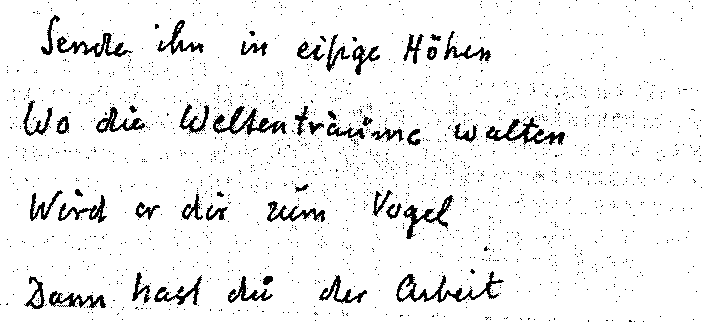 Sende ihn in eisige Höhen
Wo die Weltenträume walten
Wird er dir zum Vogel
Dann hast du der Arbeit